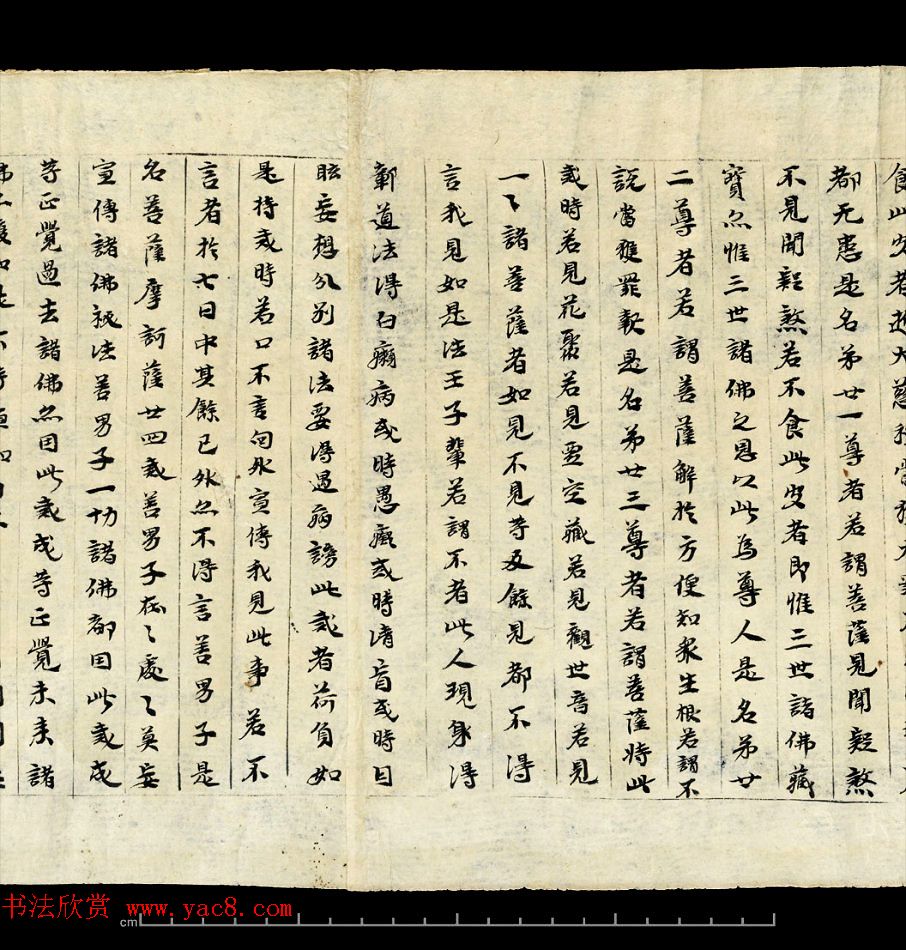 食此
都无患是名弟廿一尊者若謂菩薩見聞毀煞
不見聞毀煞若不食此完者即惟三世諸佛藏
寶亦惟三世諸佛之恩以此為尊人是名弟廿
二尊者若謂菩薩解於方便知衆生根若謂不
説當獲罪報是名弟廿三尊者若謂菩薩時此
或時若見花聚若見虛空藏若見觀世音若見
一々諸菩薩者如見不見等及餘見都不得
言我見如是法王子輩若謂不者此人現身得
鄣道法得白癩病或時愚癡或時清盲或時目
眩妄想分别諸法要得過病謗此戒者荷負如
是持戒時若口不言向外宣傳我見此事若不
言者於七日中其餘已外亦不得言善男子是
名菩薩摩訶薩廿四戒善男子在々處々莫妄
宣傳諸佛秘法善男子一切諸佛都因此戒成
等正覺過去諸佛亦因此戒成等正覺未来諸
cm
书法欣赏 www.yac8.com